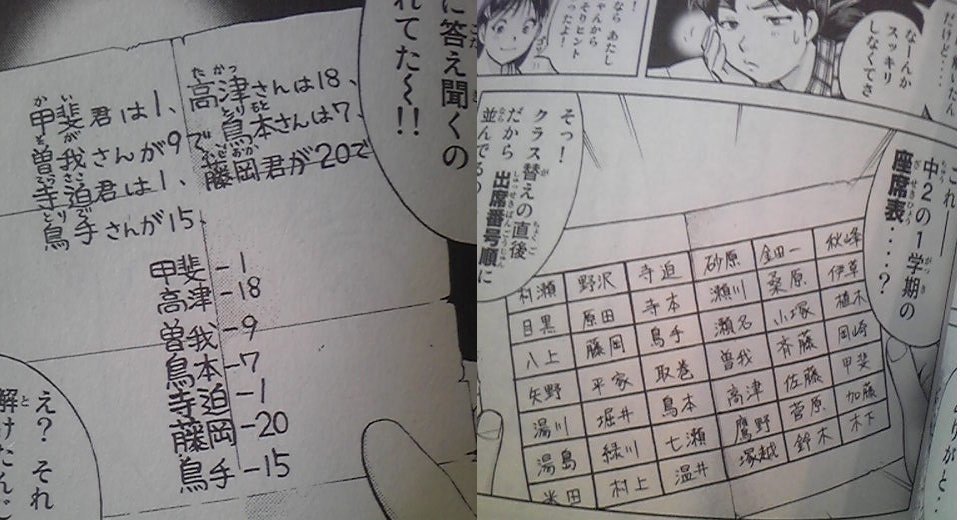 に答え聞くの
れてた〜!!
甲斐君は1、高津さんは18、
曽我さんが9で鳥本さんは7、
寺迫君は1、藤岡君が20で
鳥手さんが15、
甲斐-1
高津-18
曽我-9
鳥本-7
寺迫-1
藤岡-20
鳥手-15
え？それ
解けたんじ
なーんか
スッキリ
しなくてさ
なら あたし
ゃんから
そりヒント
ったよ！
これ──
中2の1学期の
座席表‥‥？
そっ！
クラス替えの直後
だから出席番号順に
並んでるの
村瀬 野沢 寺迫 砂原 金田一 秋峰
目黒 原田 寺本 瀬川 桑原 伊草
八上 藤岡 鳥手 瀬名 小塚 植木
矢野 平家 取巻 曽我 斉藤 岡崎
湯川 堀井 鳥本 高津 佐藤 甲斐
湯島 緑川 七瀬 鷹野 菅原 加藤
米田 村上 温井 塚越 鈴木 木下